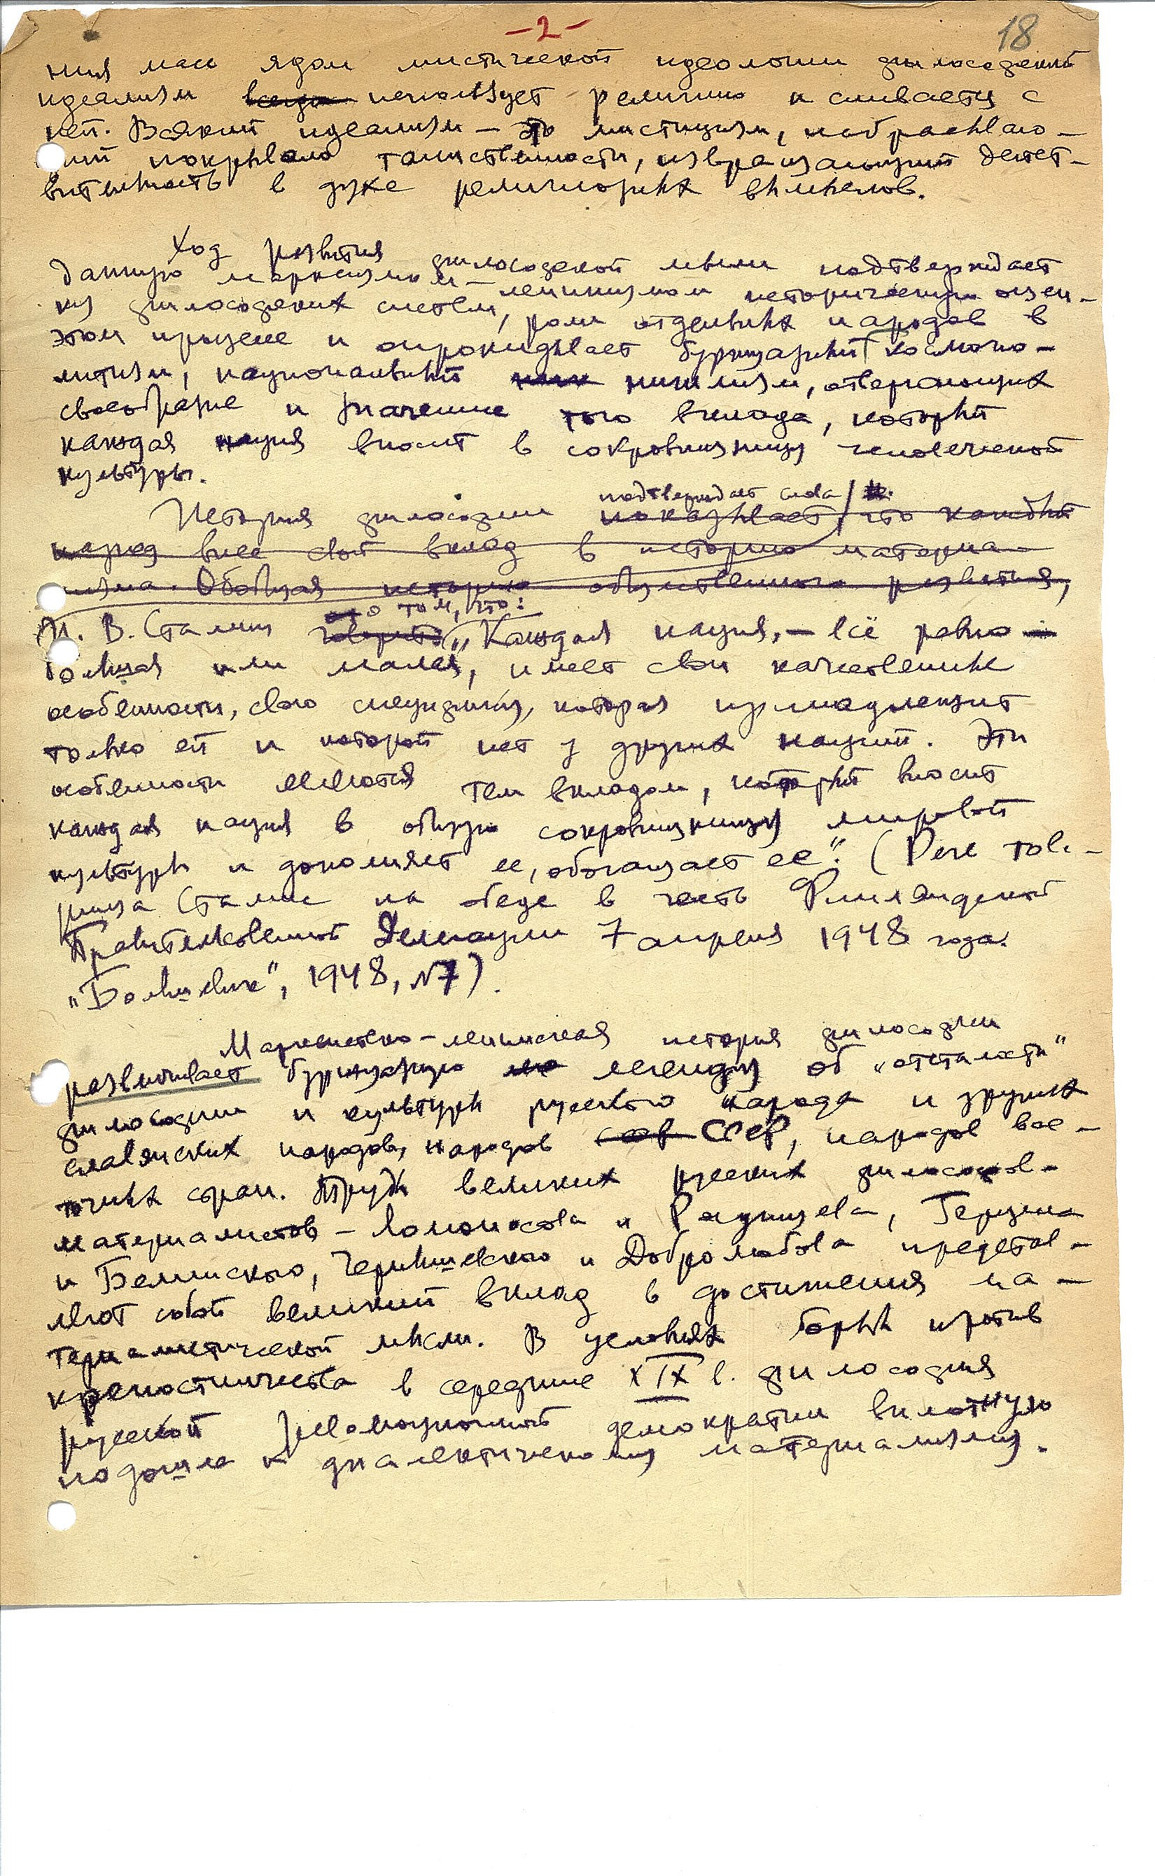 -2-
18
ния масс ядом мистической идеологии философский
идеализм всегда использует религию и сливается с
ней. Всякий идеализм – это мистицизм, набрасываю-
щий покрывало таинственности, извращающий дейст-
вительность в духе религиозных вымыслов.
Ход развития философской мысли подтверждает
данную марксизмом-ленинизмом историческую оцен-
ку философских систем, роли отдельных народов в
этом процессе и опрокидывает буржуазный космопо-
литизм, национальный нигилизм, отвергающих
своеобразие и значение того вклада, который
каждая нация вносит в сокровищницу человеческой
культуры.
подтверждает слова
История философии показывает, что каждый
народ внес свой вклад в историю материа-
лизма. Обобщая историю общественного развития,
о том, что:
И. В. Сталин говорит: „Каждая нация, – всё равно –
большая или малая, имеет свои качественные
особенности, свою специфику, которая принадлежит
только ей и которой нет у других наций. Эти
особенности являются тем вкладом, который вносит
каждая нация в общую сокровищницу мировой
культуры и дополняет ее, обогащает ее". (Речь това-
рища Сталина на обеде в честь Финляндской
Правительственной Делегации 7 апреля 1948 года.
„Большевик", 1948, №7).
Марксистско-ленинская история философии
развенчивает буржуазную легенду об „отсталости"
философии и культуры русского народа и других
славянских народов, народов СССР, народов вос-
точных стран. Труды великих русских философов-
материалистов – Ломоносова и Радищева, Герцена
и Белинского, Чернышевского и Добролюбова представ-
ляют собой великий вклад в достижения ма-
териалистической мысли. В условиях борьбы против
крепостничества в середине XIX в. философия
русской революционной демократии вплотную
подошла к диалектическому материализму.